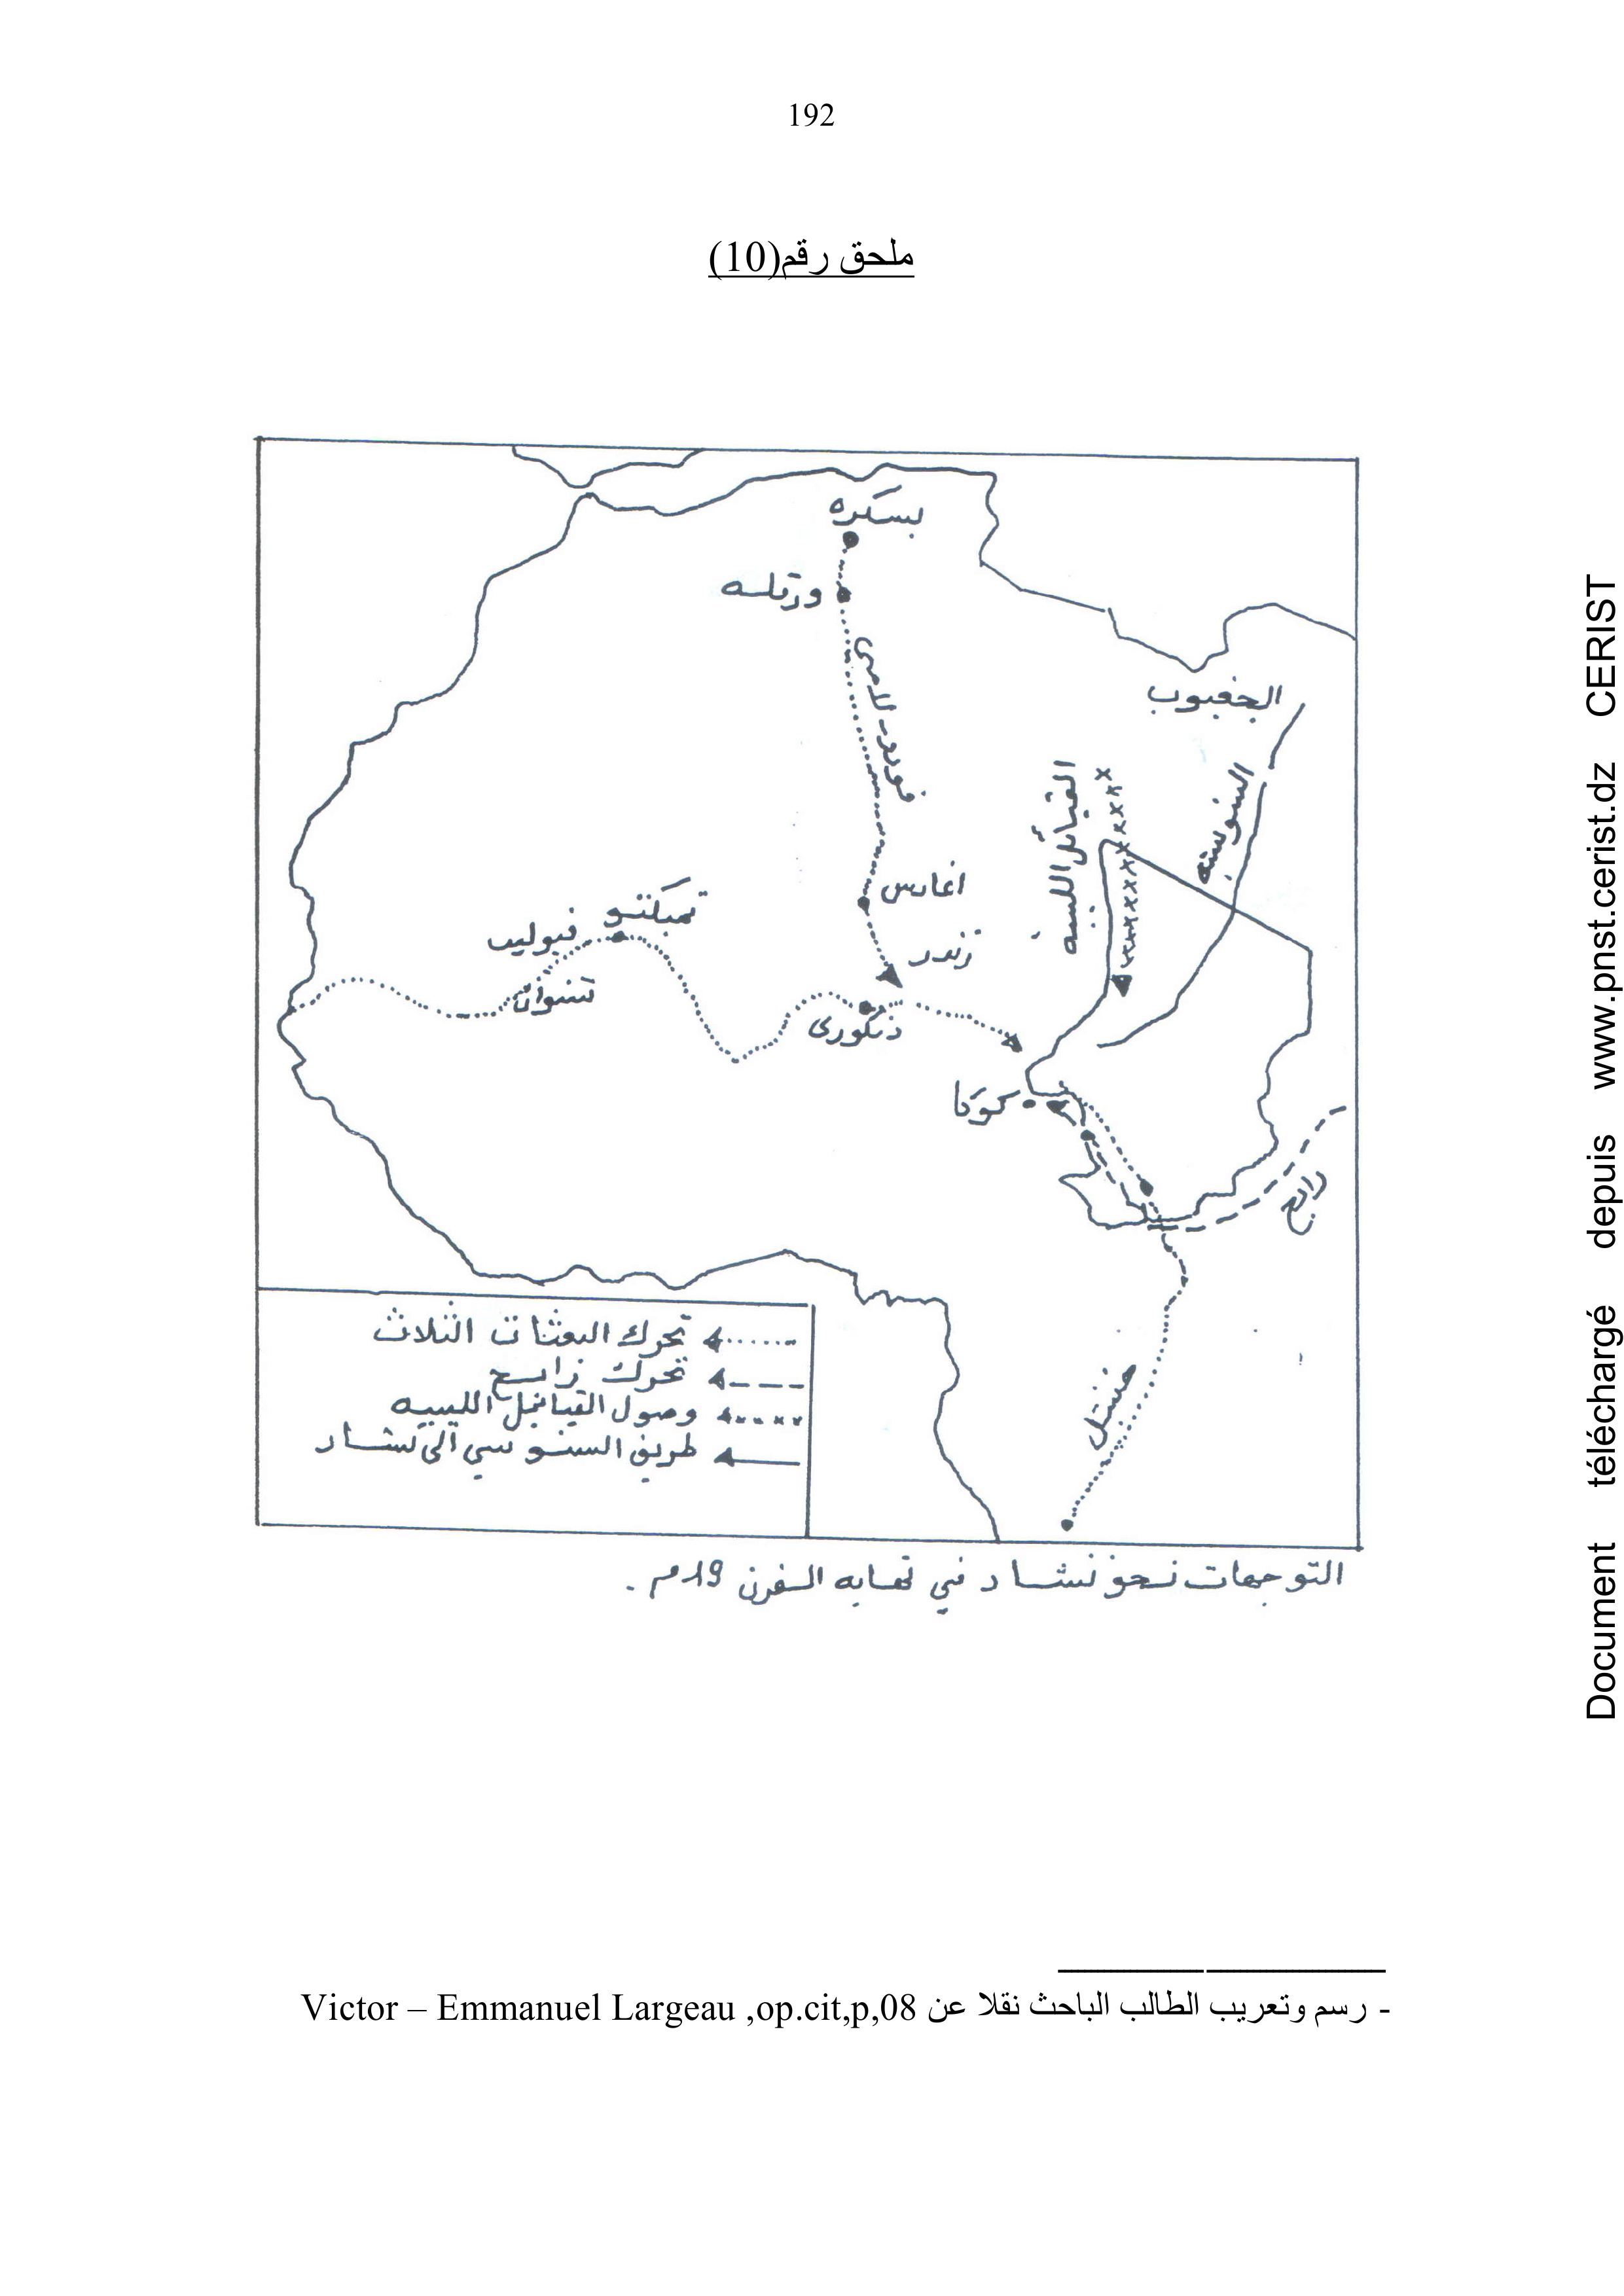 192
ملحق رقم(10)
بسكره
ورقلـه
فورو- لامي
الجغبوب
السنوسيّة
القبائل الليبيّة
اغادس
زندر
تمبكتـو
فـوليـه
دنكوري
كوكا
رابح
جنتل
تحرك البعثات الثلاث
تحرك رابـح
وصول القبائل الليبيه
طريق السنوسي الى تشـاد
التوجهات نحو تشـاد في نهايه القرن 19م.
- رسم وتعريب الطالب الباحث نقلا عن Victor – Emmanuel Largeau ,op.cit,p,08
Document téléchargé depuis www.pnst.cerist.dz CERIST